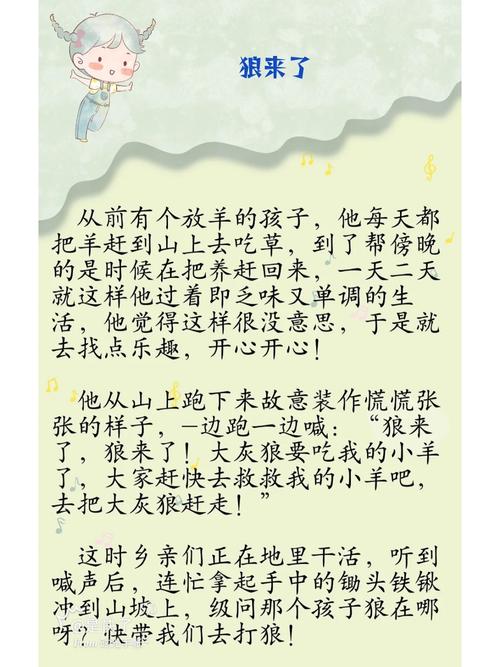 狼来了
从前有个放羊的孩子，他每天都
把羊赶到山上去吃草，到了帮傍晚
的是时候在把养赶回来，一天二天
就这样他过着即乏味又单调的生
活，他觉得这样很没意思，于是就
去找点乐趣，开心开心！
他从山上跑下来故意装作慌慌张
张的样子，—边跑一边喊：“狼来
了，狼来了！大灰狼要吃我的小羊
了，大家赶快去救救我的小羊吧，
去把大灰狼赶走！”
这时乡亲们正在地里干活，听到
喊声后，连忙拿起手中的锄头铁锹
冲到山坡上，级问那个孩子狼在哪
呀，快带我们去打狼！